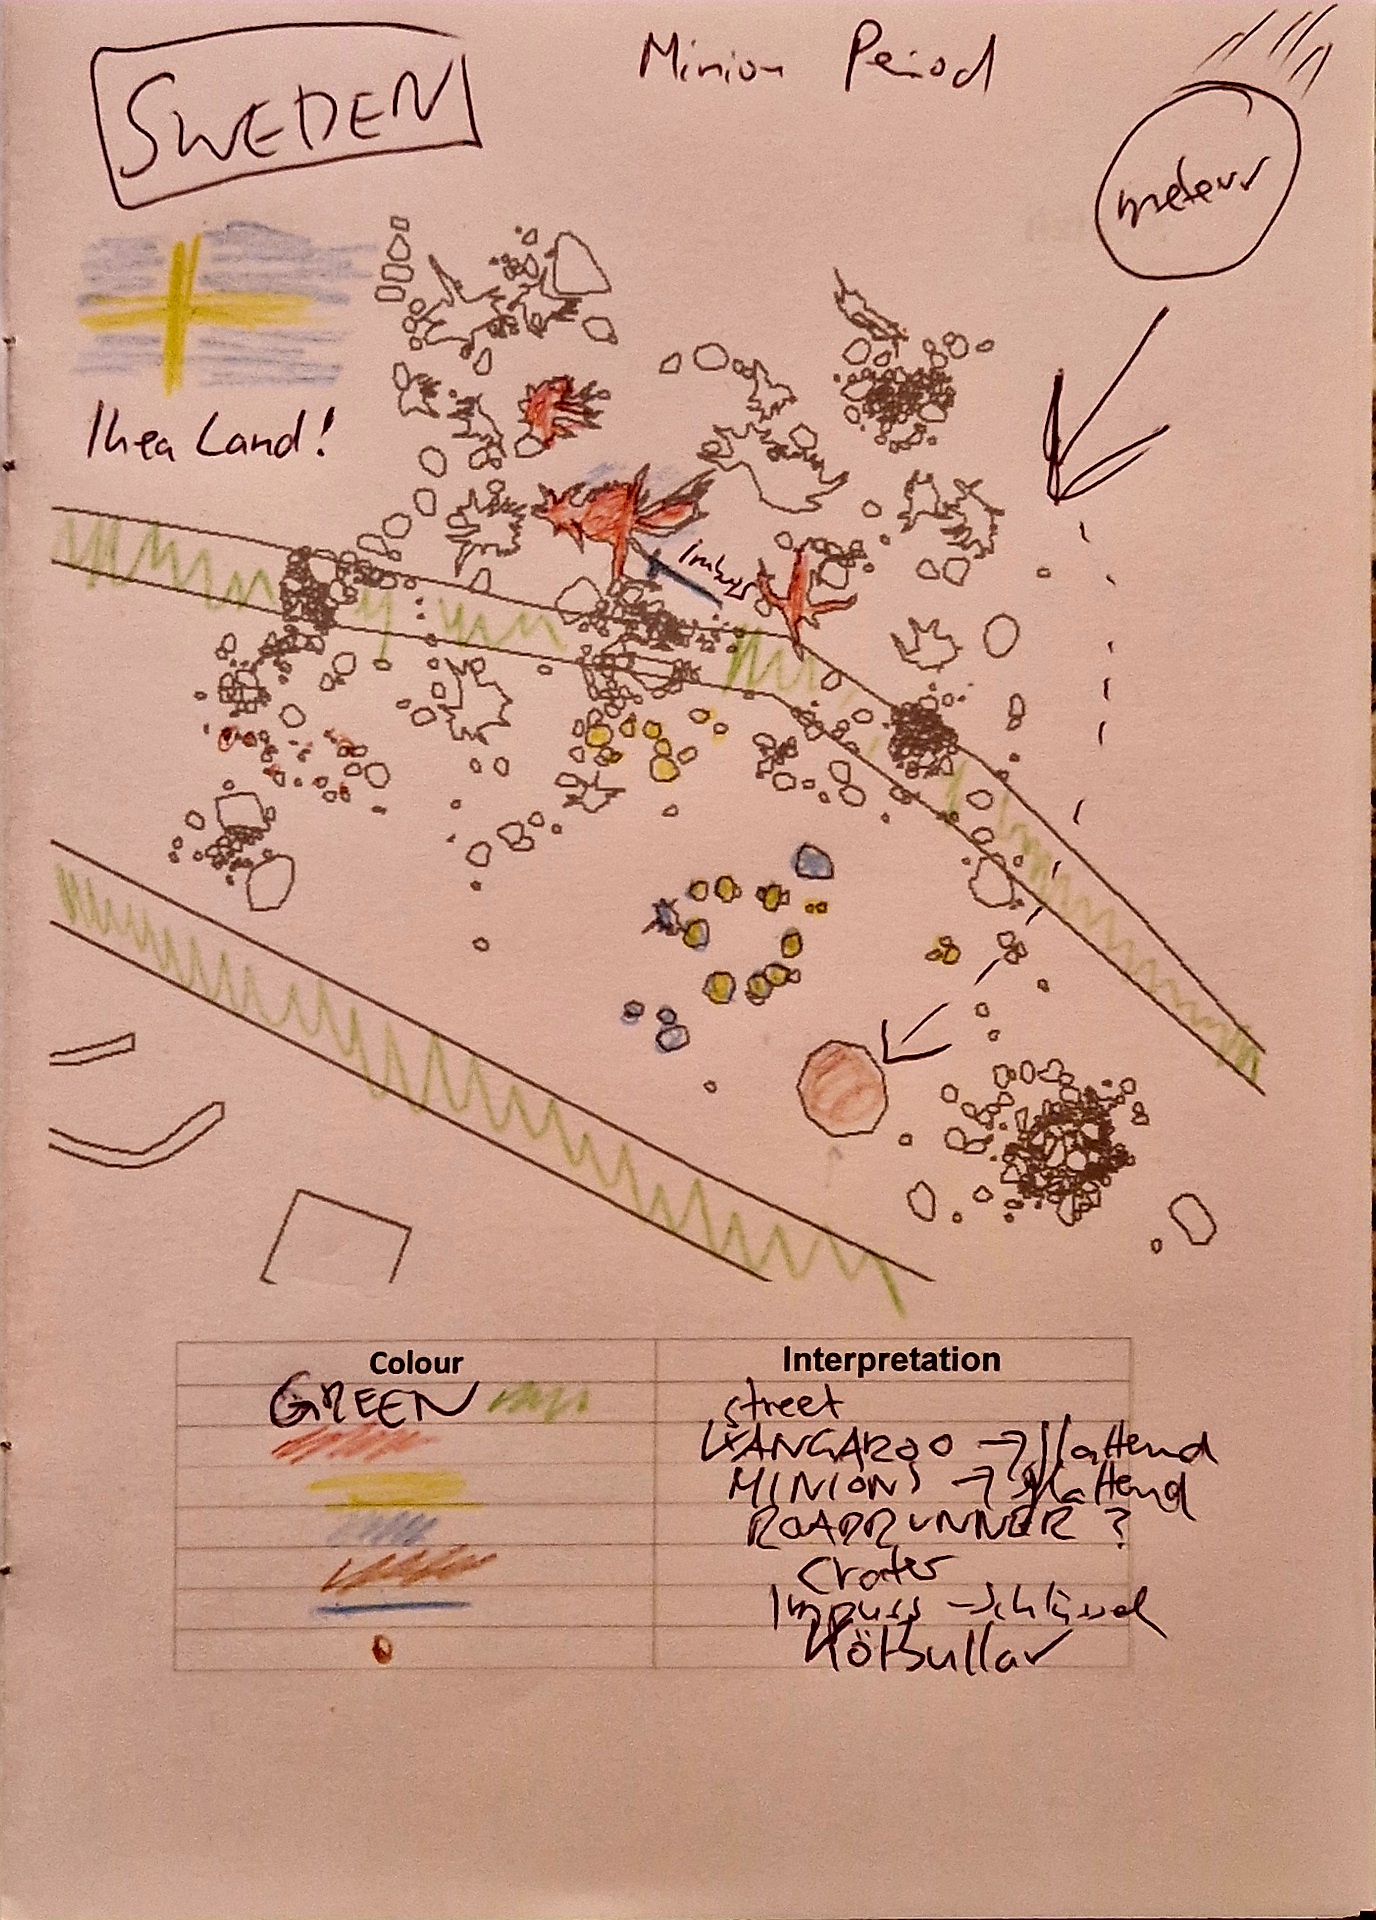 SWEDEN
Minion Period
meteor
Ikea Land!
Imbus
Colour Interpretation
GREEN street
KANGAROO → flattend
MINIONS → flattend
ROADRUNNER ?
Crater
Impuss → schlüssel
Kötbullar